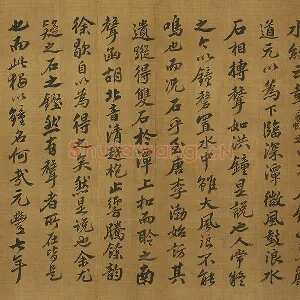 道元以為下臨深潭微風鼓浪水
石相搏聲如洪鐘是說也人常疑
之今以鐘磬置水中雖大風浪不能
鳴也而況石乎至唐李渤始訪其
遺蹤得雙石於潭上扣而聆之南
聲函胡北音清越枹止響騰餘韻
徐歇自以為得之矣然是說也余尤
疑之石之鏗然有聲者所在皆是
也而此獨以鐘名何哉元豐七年